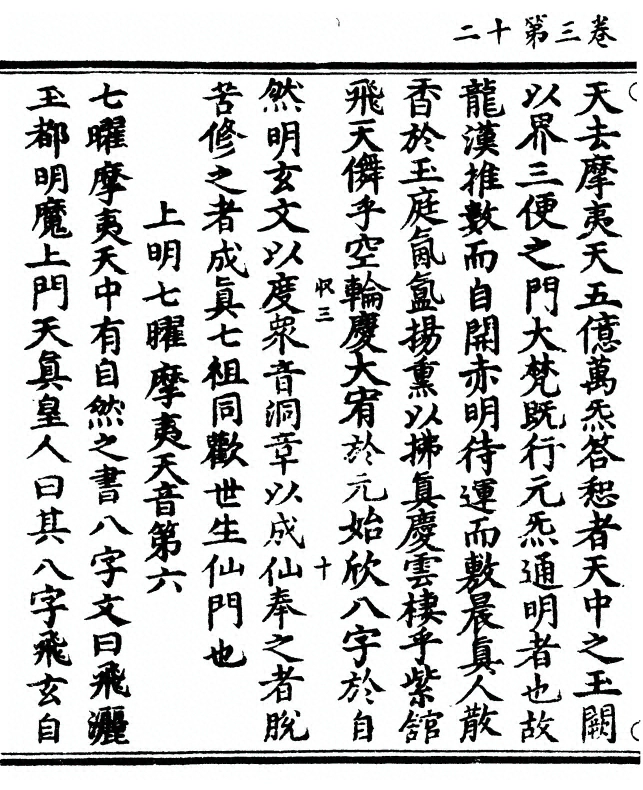 二十第三卷
天去摩夷天五億萬炁答恕者天中之玉闕
以界三便之門大梵既行元炁通明者也故
龍漢推數而自開赤明待運而敷晨真人散
香於玉庭氤氳揚熏以拂真慶雲棲乎紫舘
飛天儛乎空輪慶大宥於元始欣八字於自
忄三 十
然明玄文以度眾音洞章以成仙奉之者脫
苦修之者成真七祖同歡世生仙門也
上明七曜摩夷天音第六
七曜摩夷天中有自然之書八字文曰飛灑
玉都明魔上門天真皇人曰其八字飛玄自